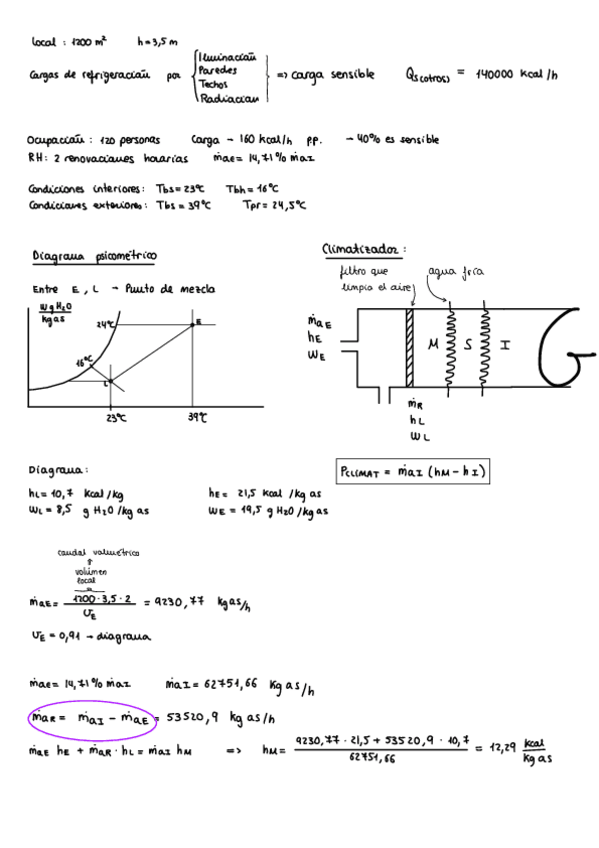 local : 1200 m² h=3,5 m
Cargas de refrigeración por
Iluminación
Paredes
Techos
Radiación
=> carga sensible Qs(otros) = 140000 kcal/h
Ocupación : 120 personas Carga - 160 kcal/h p.p. - 40% es sensible
RH: 2 renovaciones horarias ṁae= 14,71% ṁaI
Condiciones interiores: Tbs=23ºC Tbh=16ºC
Condiciones exteriores: Tbs=39ºC Tpr=24,5ºC
Diagrama psicométrico
Climatizador :
filtro que
limpia el aire
agua fría
Entre E, L - Punto de mezcla
wgH2O
kgas
24ºC
E
16ºC
L
23ºC
39ºC
ṁaE
hE
wE
M S I
ṁR
hL
wL
Diagrama:
PCLIMAT = ṁaI (hM - hI)
hL= 10,7 kcal/kg hE= 21,5 kcal/kg as
wL= 8,5 g H2O/kg as wE= 19,5 g H2O/kg as
caudal volumétrico
volúmen
local
ṁaE= 1200·3,5·2 / υE = 9230,77 kgas/h
υE=0,91 → diagrama
ṁae= 14,71% ṁaI ṁaI= 62751,66 kg as/h
ṁaR = ṁaI - ṁaE = 53520,9 kg as/h
ṁaE hE + ṁaR · hL = ṁaI hM => hM= 9230,77 · 21,5 + 53520,9 · 10,7 / 62751,66 = 12,29 kcal/kg as